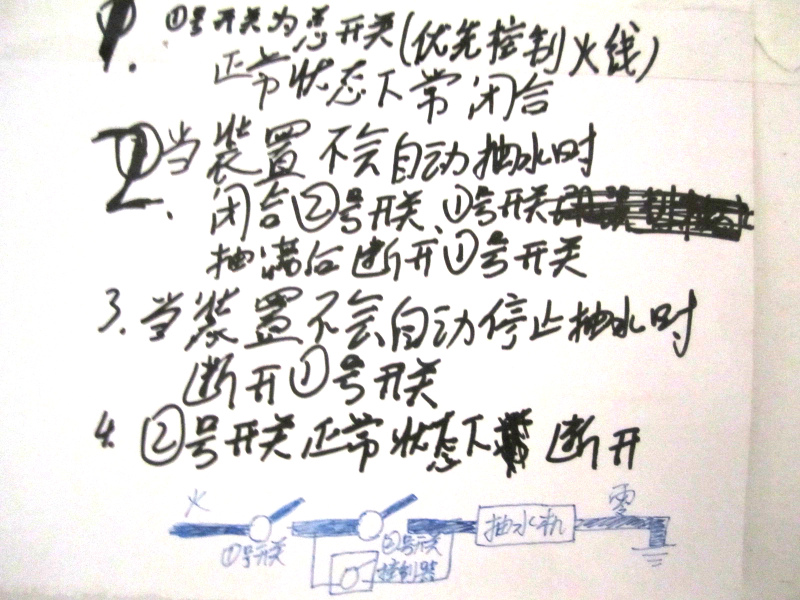 1. ①号开关为总开关(优先控制火线)
正常状态下常闭合
2. 当装置不会自动抽水时
闭合②号开关、①号开关
抽满后断开①号开关
3. 当装置不会自动停止抽水时
断开①号开关
4. ②号开关正常状态下 断开
火
①号开关
②号开关
控制器
抽水机
零